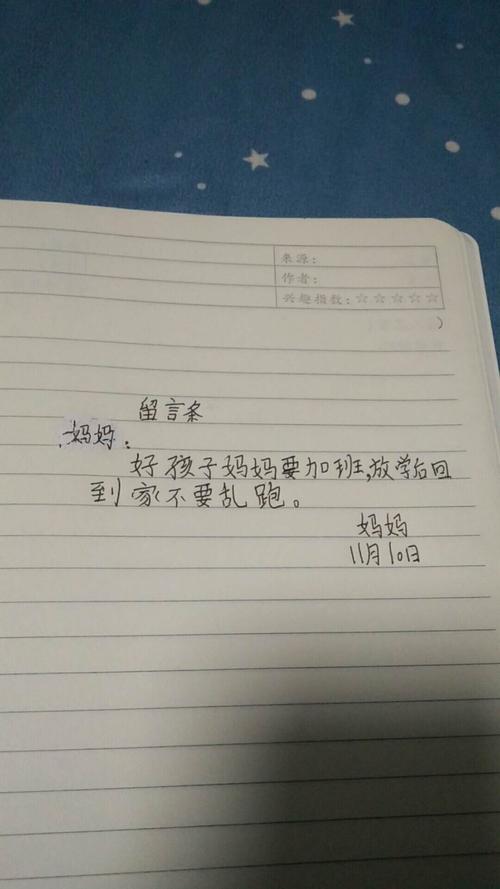 来源：
作者：
兴趣指数：☆☆☆☆☆
留言条
妈妈：
好孩子妈妈要加班,放学后回
到家不要乱跑。
妈妈
11月10日